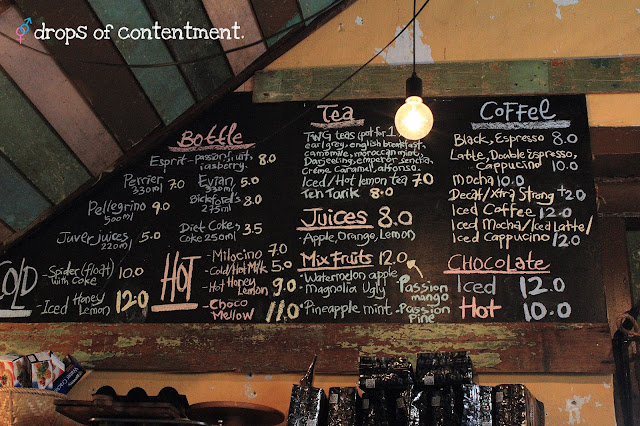 drops of contentment.
Bottle
Esprit - passion fruit, 8.0
rasberry.
Perrier 7.0
330ml
Evian 5.0
330ml
Pellegrino 9.0
500ml
Bickford's 8.0
275ml
Juver juices 5.0
220ml
Diet Coke 3.5
Coke 250ml
COLD
- Spider (float) 10.0
with coke
- Iced Honey 12.0
Lemon
HOT
- Milocino 7.0
- Cold/Hot Milk 5.0
- Hot Honey 9.0
Lemon
- Choco 11.0
Mellow
Tea
TWG teas (pot for 1
earl grey, english breakfast,
camomile, moroccan mint,
Darjeeling, emperor sencha,
Crème Caramel, alfonso.
Iced/Hot lemon tea 7.0
Teh Tarik 8.0
Juices 8.0
- Apple, Orange, Lemon
Mix Fruits 12.0
- Watermelon apple
- Magnolia Ugly
- Pineapple mint.
- Passion
mango
- Passion
Pine
Coffee
Black, Espresso 8.0
Latte, Double Espresso,
Cappucino 10.0
Mocha 10.0
Decaf/Xtra Strong +2.0
Iced Coffee 12.0
Iced Mocha/Iced Latte/
Iced Cappucino 12.0
CHOCOLATE
Iced 12.0
Hot 10.0